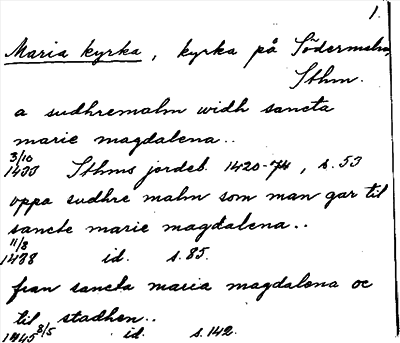 1.
Maria kyrka, kyrka på Södermalm,
Sthm.
a sudhremalm widh sancta
marie magdalena..
3/10
Sthms jordeb. 1420-74, s. 53
oppa sudhre malm som man gar til
sancte marie magdalena..
11/8
id. s. 85.
fran sancta maria magdalena oc
til stadhen..
1445 8/5 id. s. 142.